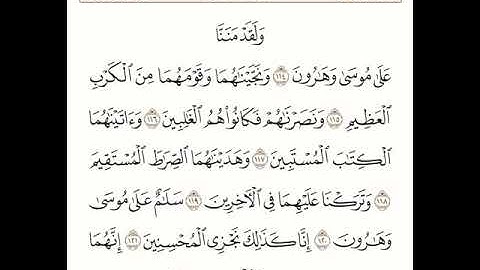 وَلَقَدْ مَنَنَّا
عَلَىٰ مُوسَىٰ وَهَٰرُونَ ١١٤ وَنَجَّيْنَٰهُمَا وَقَوْمَهُمَا مِنَ ٱلْكَرْبِ
ٱلْعَظِيمِ ١١٥ وَنَصَرْنَٰهُمْ فَكَانُوا۟ هُمُ ٱلْغَٰلِبِينَ ١١٦ وَءَاتَيْنَٰهُمَا
ٱلْكِتَٰبَ ٱلْمُسْتَبِينَ ١١٧ وَهَدَيْنَٰهُمَا ٱلصِّرَٰطَ ٱلْمُسْتَقِيمَ
١١٨ وَتَرَكْنَا عَلَيْهِمَا فِى ٱلْءَاخِرِينَ ١١٩ سَلَٰمٌ عَلَىٰ مُوسَىٰ
وَهَٰرُونَ ١٢٠ إِنَّا كَذَٰلِكَ نَجْزِى ٱلْمُحْسِنِينَ ١٢١ إِنَّهُمَا